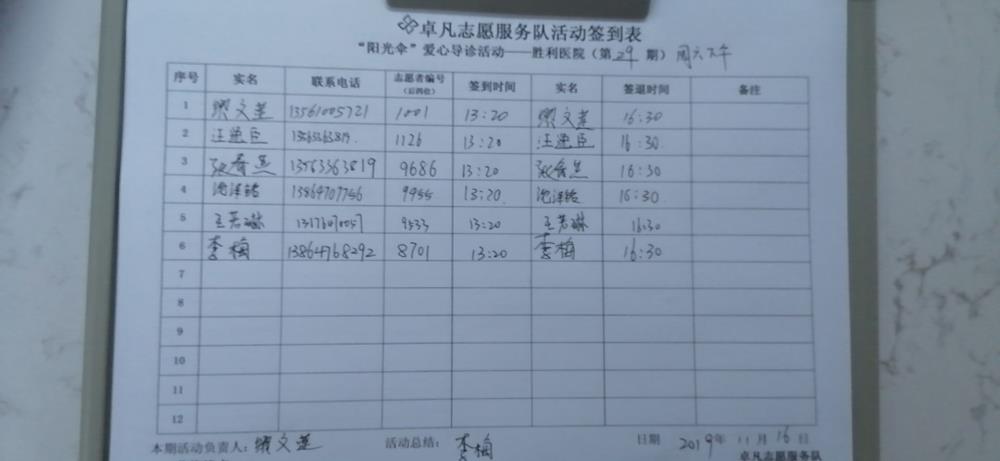 卓凡志愿服务队活动签到表
“阳光伞”爱心导诊活动——胜利医院（第29期）周六下午
序号 实名 联系电话 志愿者编号（后四位） 签到时间 实名 签退时间 备注
1 缪文莲 13561005721 1001 13:20 缪文莲 16:30
2 1126 13:20 16:30
3 13563363819 9686 13:20 16:30
4 13864707746 13:20 16:30
5 王若琳 13:20 王若琳 16:30
6 李梅 13864768292 8701 13:20 李梅 16:30
7
8
9
10
11
12
本期活动负责人：缪文莲 活动总结：李梅 日期 2019年11月16日
卓凡志愿服务队